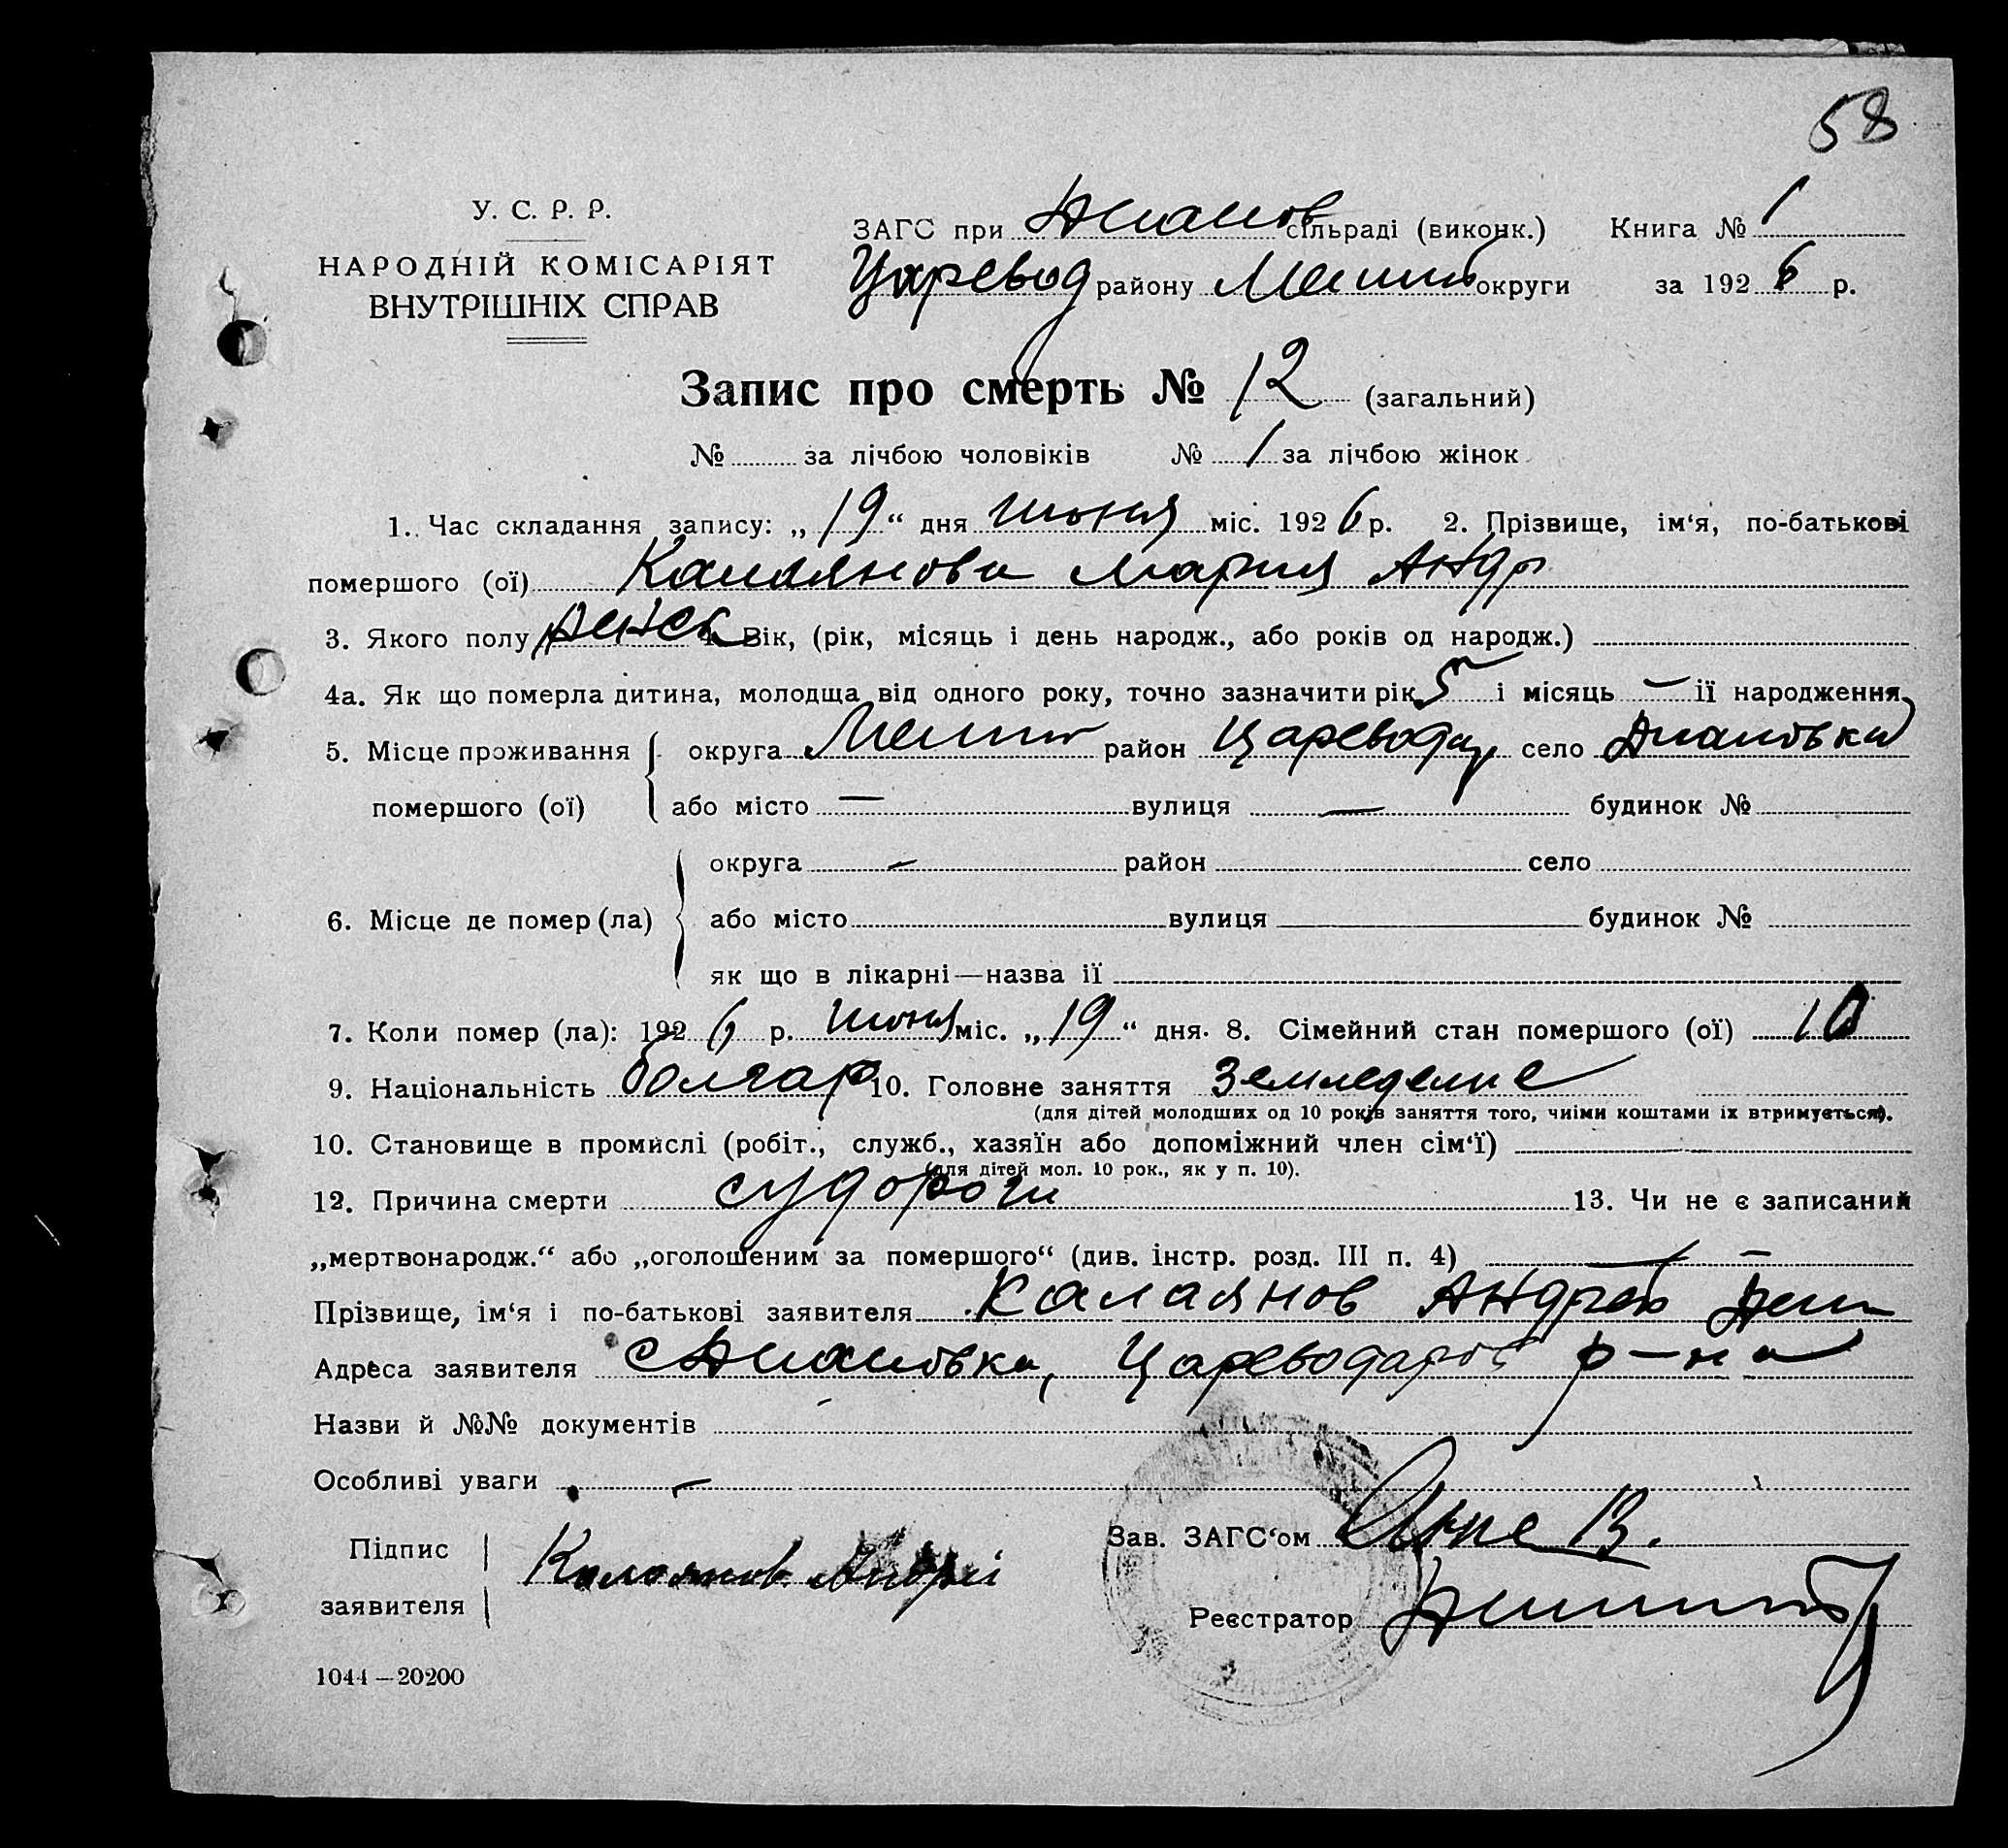 58
У. С. Р. Р.
НАРОДНІЙ КОМІСАРІЯТ
ВНУТРІШНІХ СПРАВ
ЗАГС при сільраді (виконк.) Книга № 1
Царевод району Мелит округи за 1926 р.
Запис про смерть № 12 (загальний)
№ за лічбою чоловіків № 1 за лічбою жінок
1. Час складання запису: „19“ дня июня міс. 1926 р. 2. Прізвище, ім‘я, по-батькові
помершого (ої) Калаянова Мария Андр
3. Якого полу женск 4. Вік, (рік, місяць і день народж., або років од народж.)
4а. Як що померла дитина, молодща від одного року, точно зазначити рік 5 і місяць — її народження
5. Місце проживання округа Мелит район Царевод село
помершого (ої) або місто — вулиця — будинок №
округа — район село
6. Місце де помер (ла) або місто вулиця будинок №
як що в лікарні—назва її
7. Коли помер (ла): 1926 р. июня міс. „19“ дня. 8. Сімейний стан помершого (ої) 10
9. Національність болгар 10. Головне заняття Земледелие
(для дітей молодших од 10 років заняття того, чиїми коштами їх втримується).
10. Становище в промислі (робіт., служб., хазяїн або допоміжний член сім‘ї)
(для дітей мол. 10 рок., як у п. 10).
12. Причина смерти судороги 13. Чи не є записаний
„мертвонародж.“ або „оголошеним за помершого“ (див. інстр. розд. III п. 4) — —
Прізвище, ім‘я і по-батькові заявителя Калаянов Андрей
Адреса заявителя Цареводаров р-на
Назви й №№ документів
Особливі уваги —
Підпис заявителя Калоянов Андрей
Зав. ЗАГС‘ом
Реєстратор
1044—20200